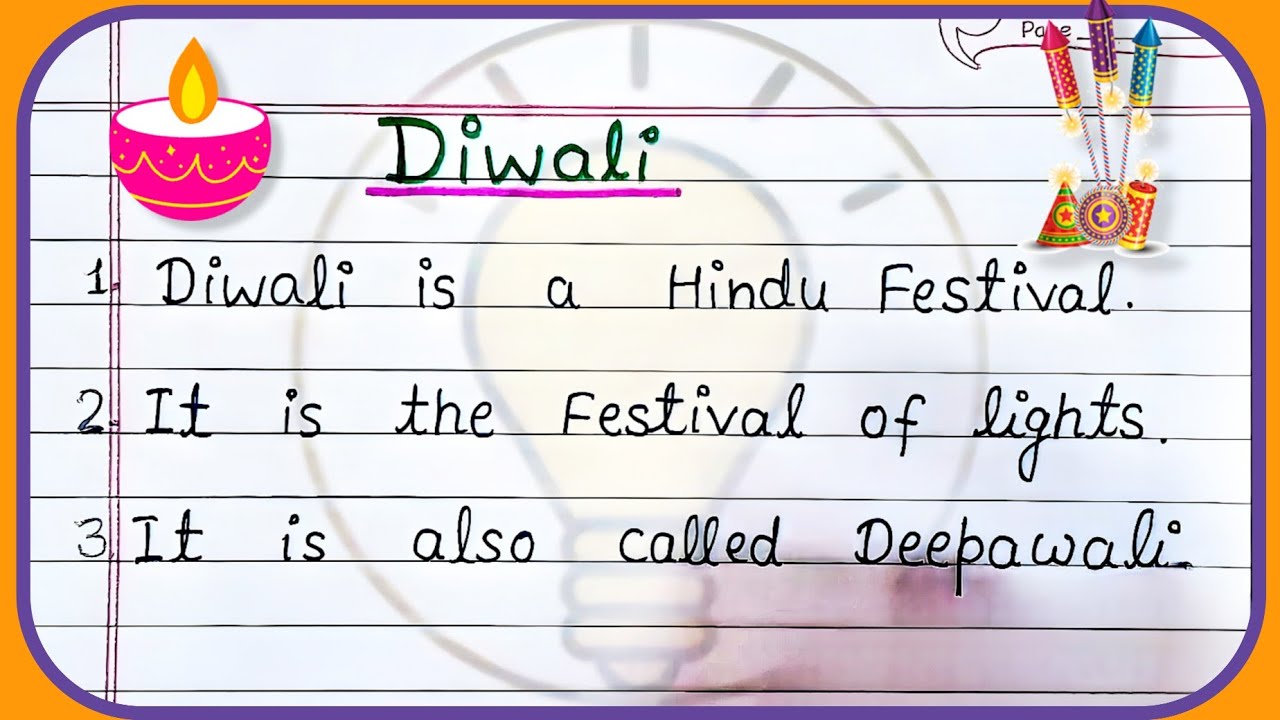 Page
Diwali
1. Diwali is a Hindu Festival.
2. It is the Festival of lights.
3. It is also called Deepawali.